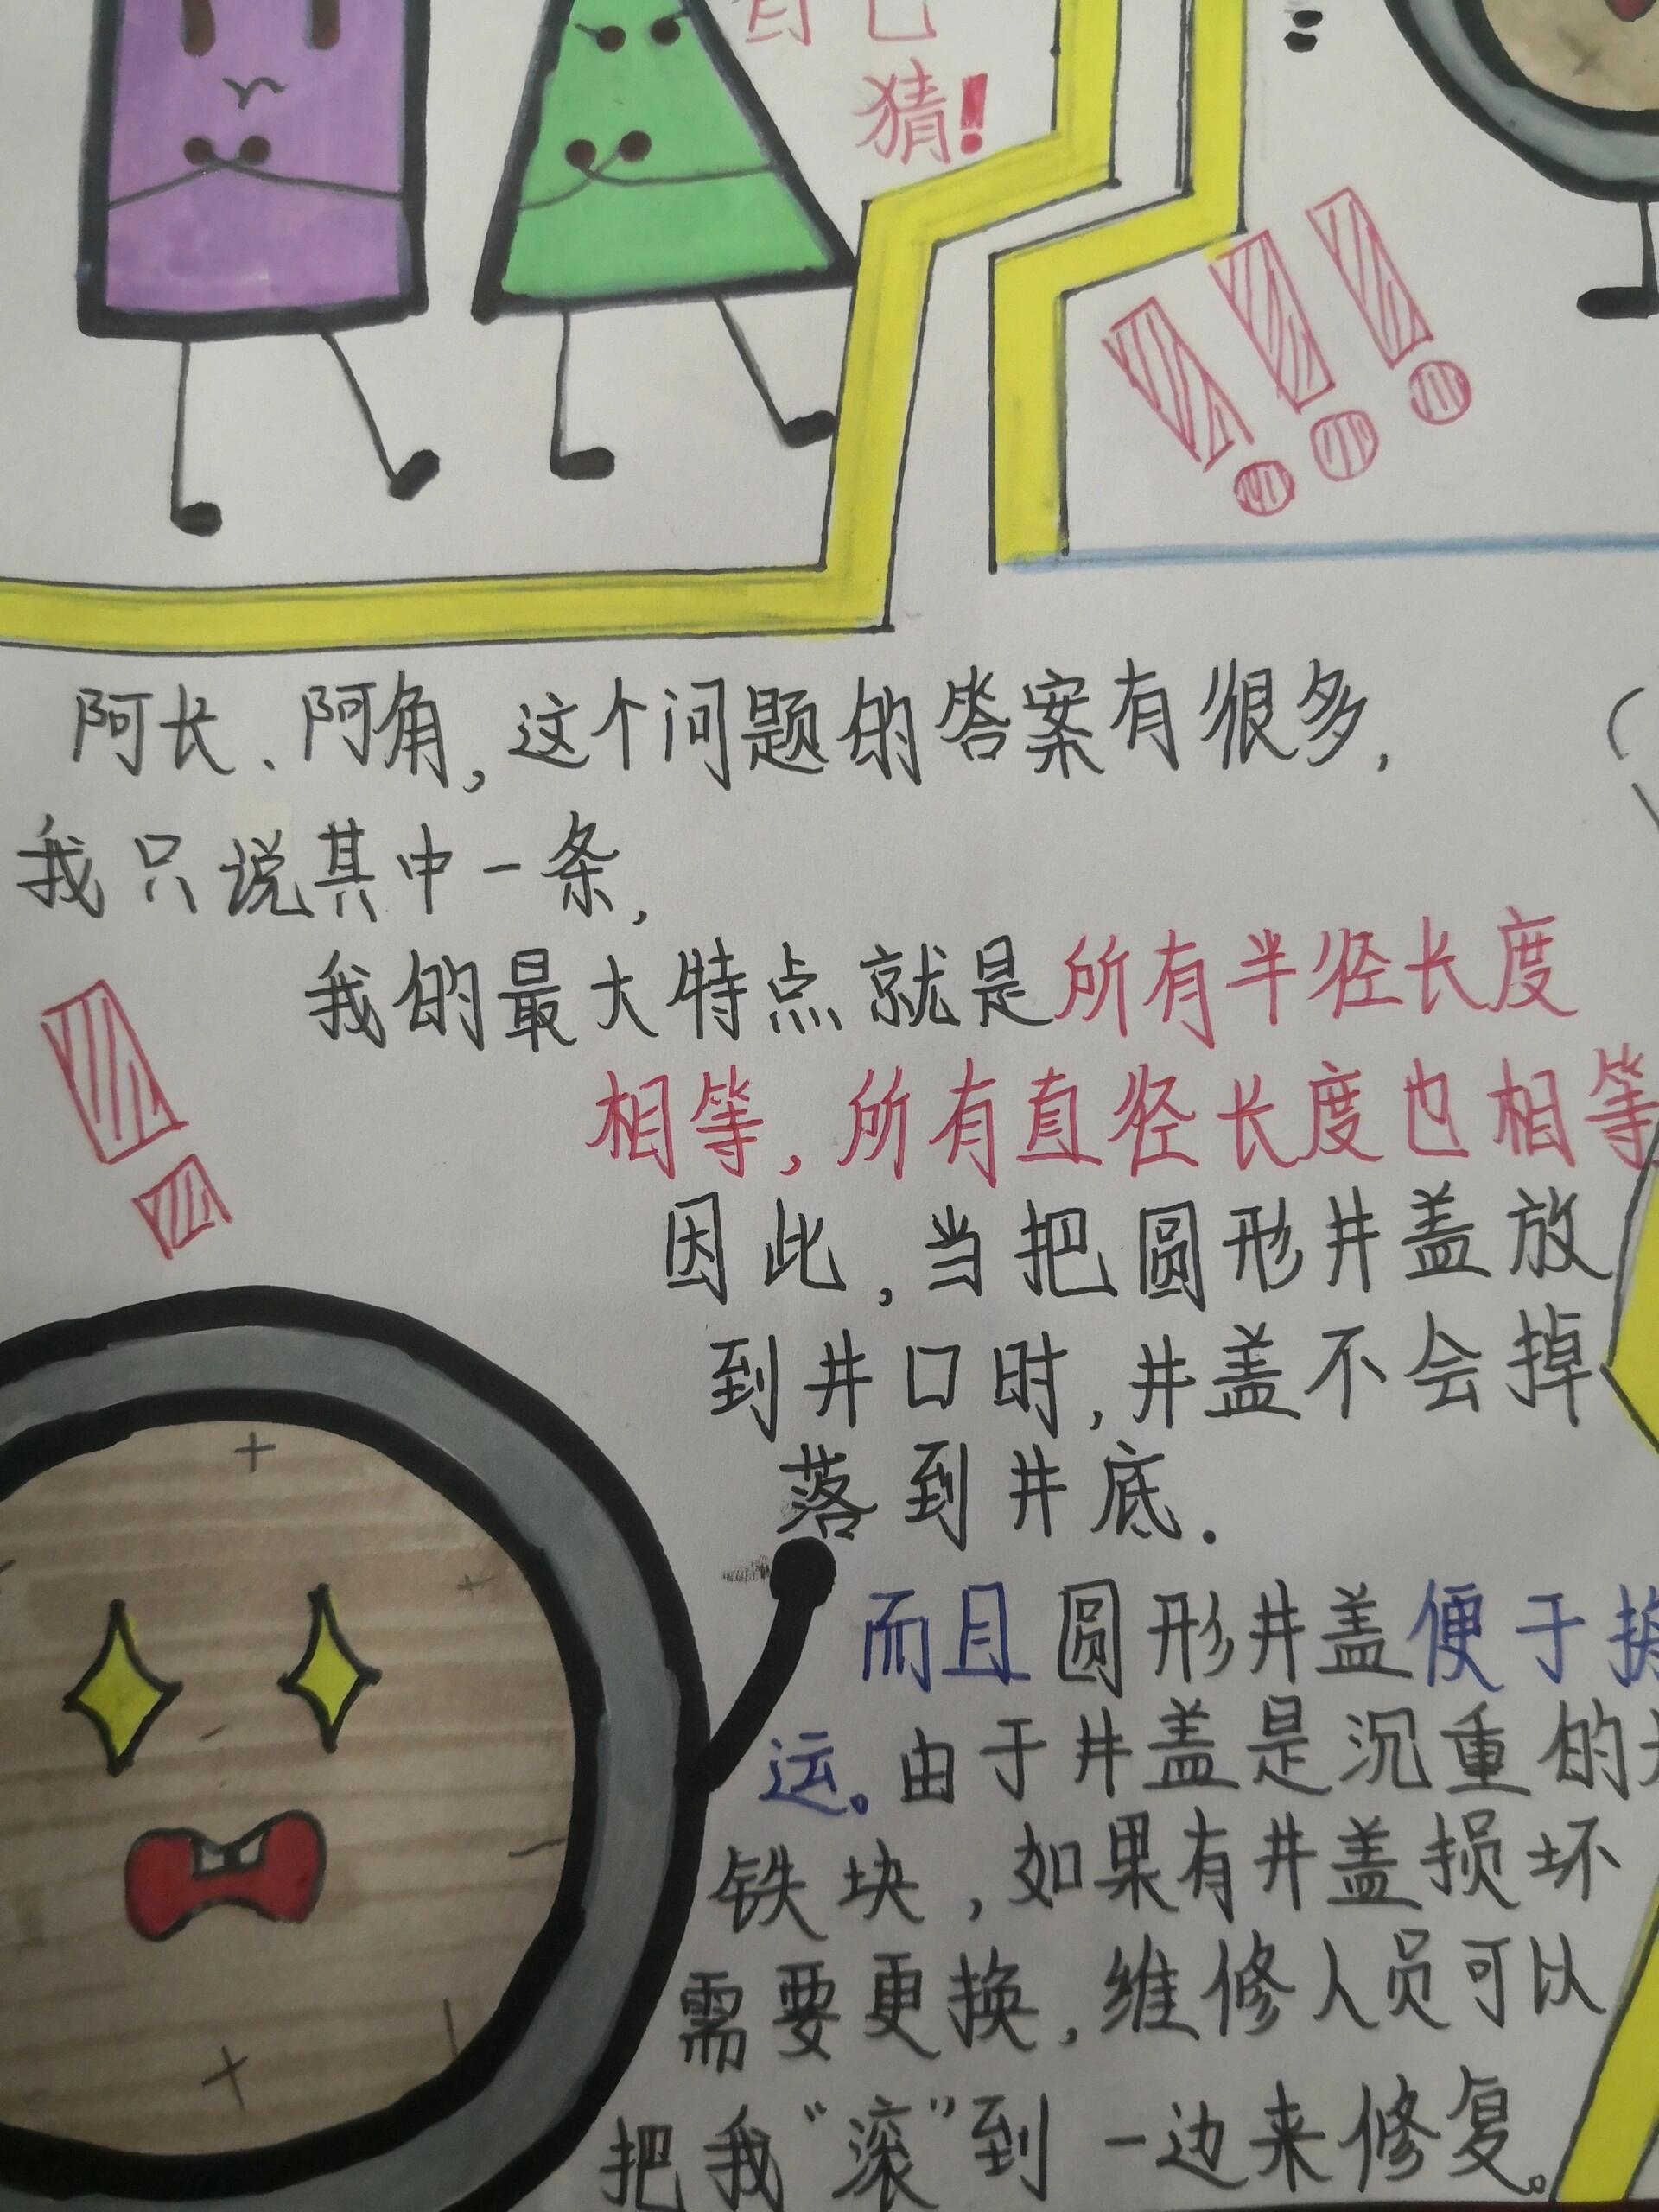 自己
猜!
阿长、阿角,这个问题的答案有很多,
我只说其中一条,
我的最大特点就是所有半径长度
相等,所有直径长度也相等
因此,当把圆形井盖放
到井口时,井盖不会掉
落到井底.
而且圆形井盖便于搬
运。由于井盖是沉重的大
铁块,如果有井盖损坏
需要更换,维修人员可以
把我“滚”到一边来修复。